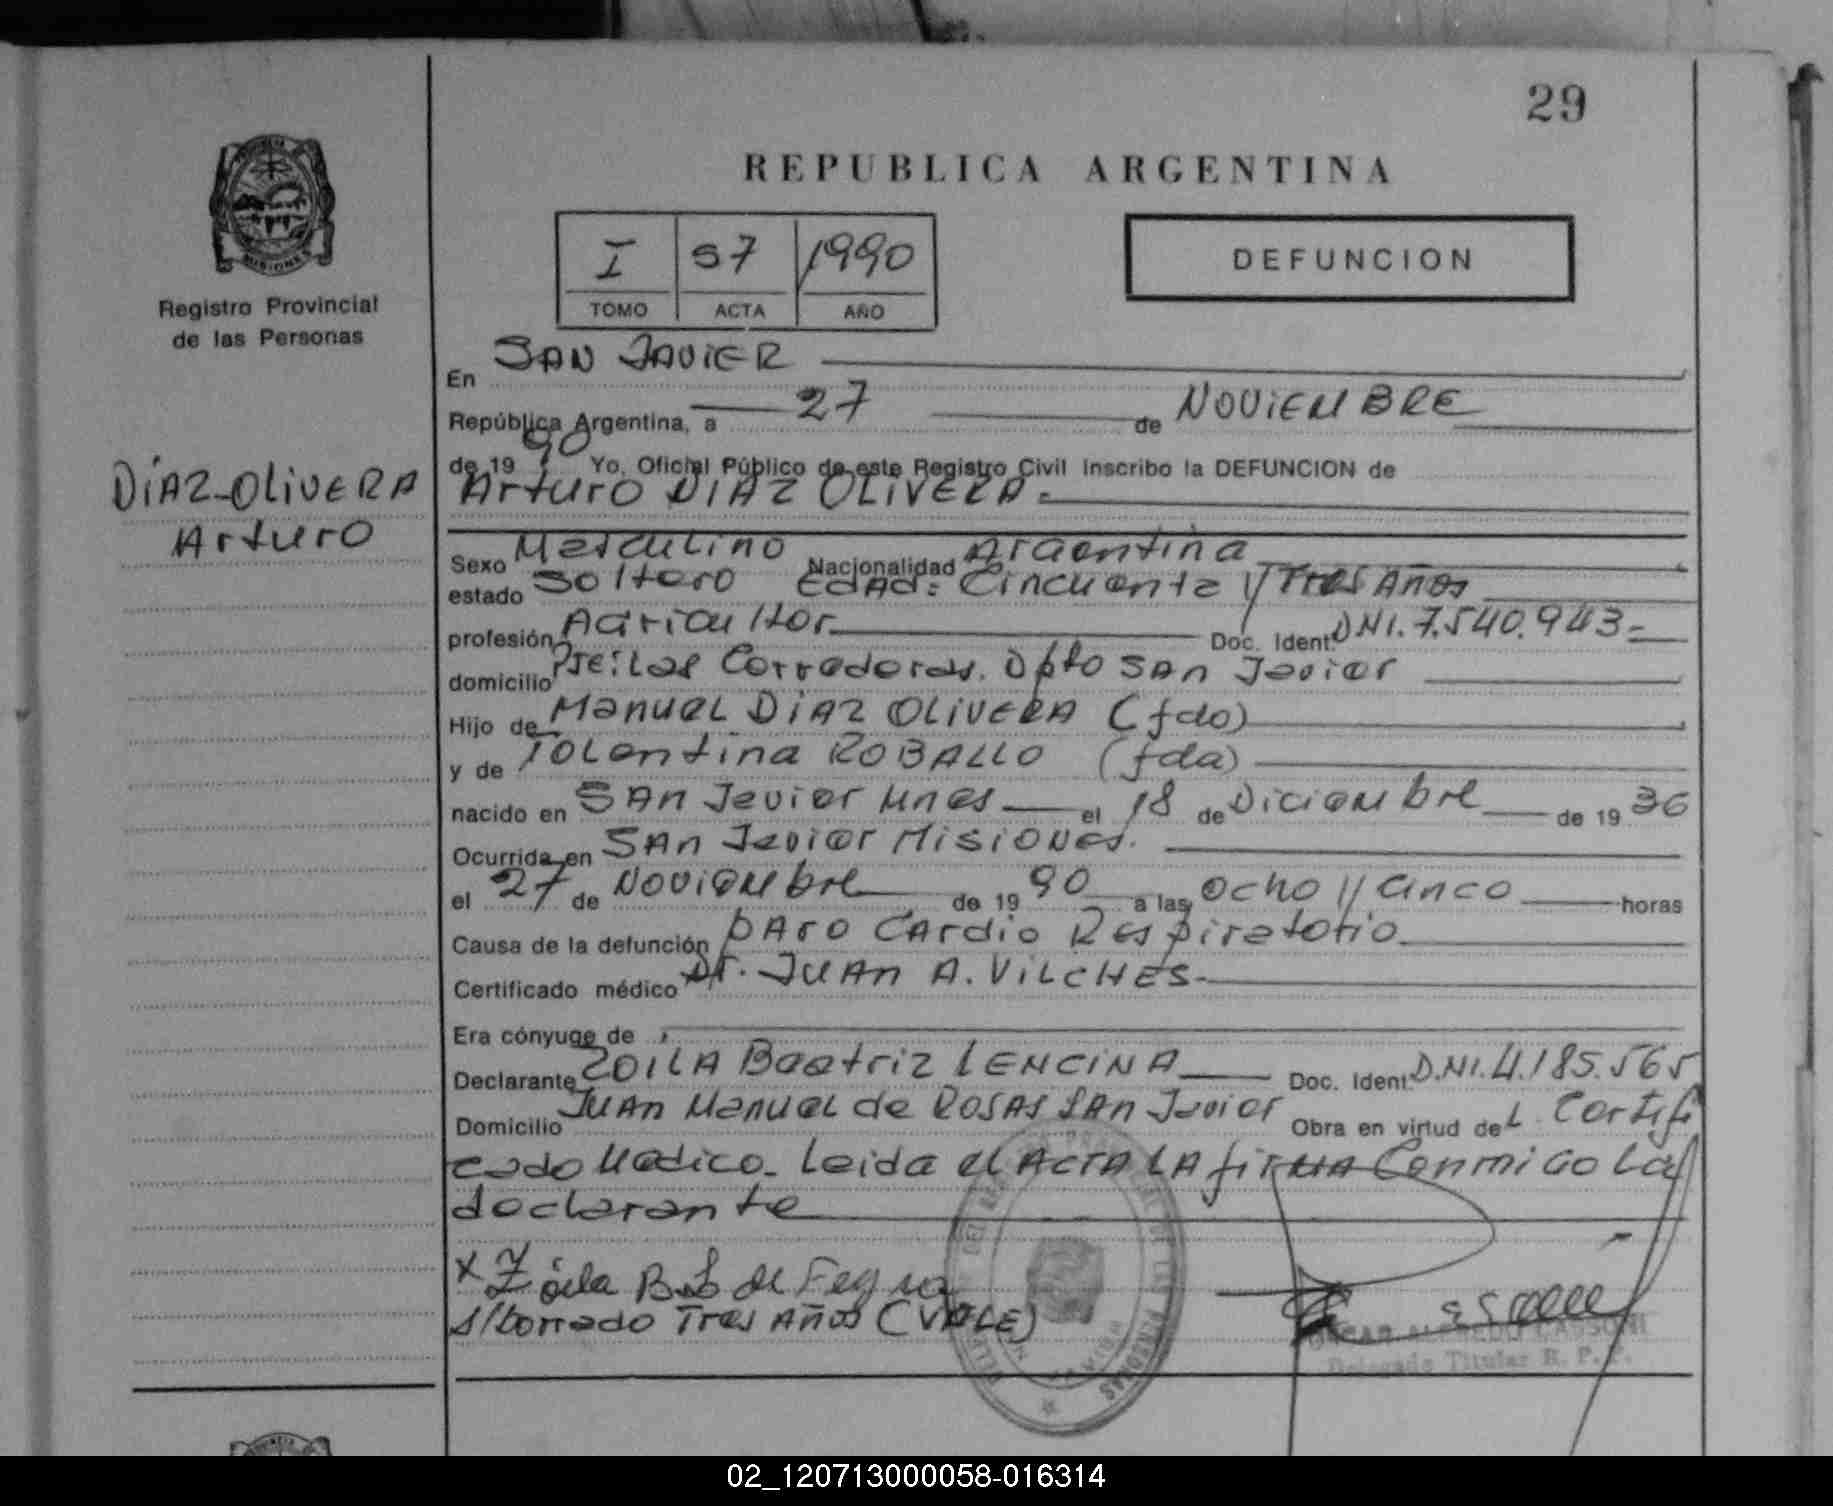 29
REPUBLICA ARGENTINA
I 57 1990
TOMO ACTA AÑO
DEFUNCION
MISIONES
Registro Provincial
de las Personas
DÍAZ-OLIVERA
Arturo
En SAN JAVIER
República Argentina, a 27 de NOVIEMBRE
de 1990 Yo, Oficial Público de este Registro Civil inscribo la DEFUNCION de
Arturo DIAZ OLIVERA.
Sexo Masculino Nacionalidad Argentina
estado Soltero EDAD: Cincuenta y Tres Años
profesión Agricultor Doc. Ident. DNI. 7.540.943=
domicilio Pje: Las Corredoras. Dpto SAn Javier
Hijo de Manuel DIAZ OLIVERA (fdo)
y de Tolentina ROBALLO (fda)
nacido en SAn Javier Mnes el 18 de Diciembre de 1936
Ocurrida en SAn Javier Misiones.
el 27 de Noviembre de 1990 a las ocho y cinco horas
Causa de la defunción pAro CArdio Respiratorio
Certificado médico Dr. JUAn A. VILCHES-
Era cónyuge de
Declarante ZOILA Beatriz LENCINA Doc. Ident. D.NI. 4.185.565
Domicilio JUAn Manuel de ROSAS SAn Javier Obra en virtud del Certifi
cado Medico. Leida el ActA LA firMA Conmigo La
declarante
x Zoila B. L de
s/borrado Tres Años (VALE)
OSCAR ALFREDO
Delegado Titular R. P. P.
02_120713000058-016314